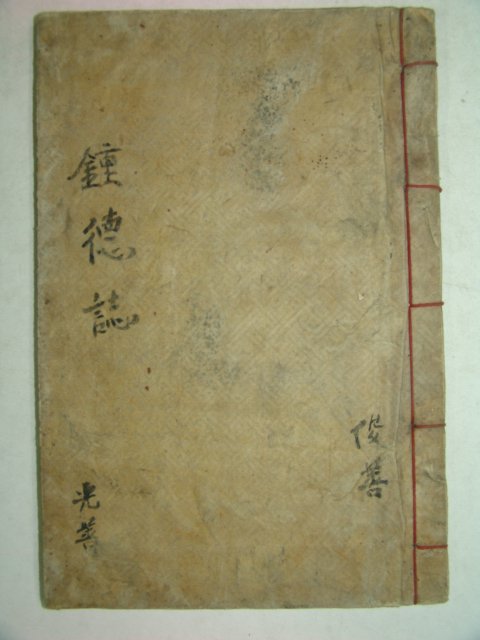 鍾德誌
俊善
光善